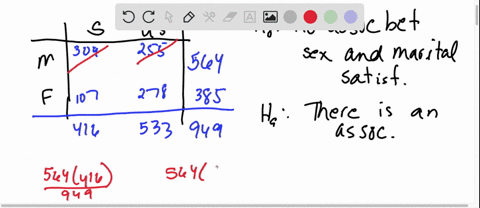 S
assoc bet
M 309 255 564
sex and marital
satisf.
F 107 278 385
Ha: There is an
416 533 949
assoc.
564(416) 564(
949